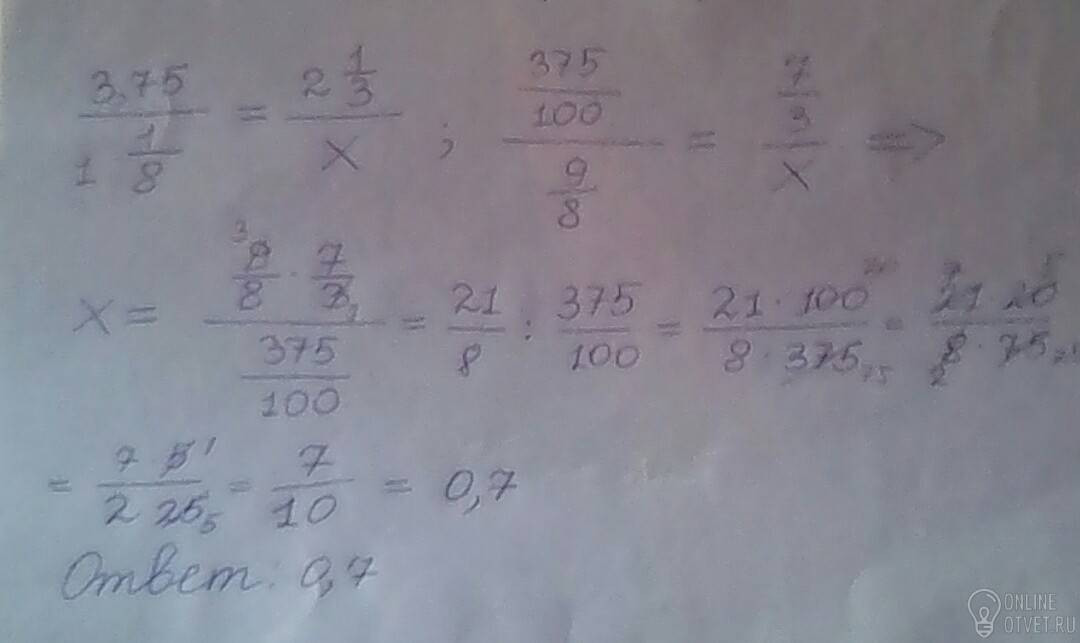 3,75 / 1 1/8 = 2 1/3 / x ; 375/100 / 9/8 = 7/3 / x =>
x = 9/8 · 7/3 / 375/100 = 21/8 : 375/100 = 21 · 100 / 8 · 375 = 21 20 / 8 · 75
= 7 5 / 2 25 = 7/10 = 0,7
Ответ: 0,7
ONLINE
OTVET.RU